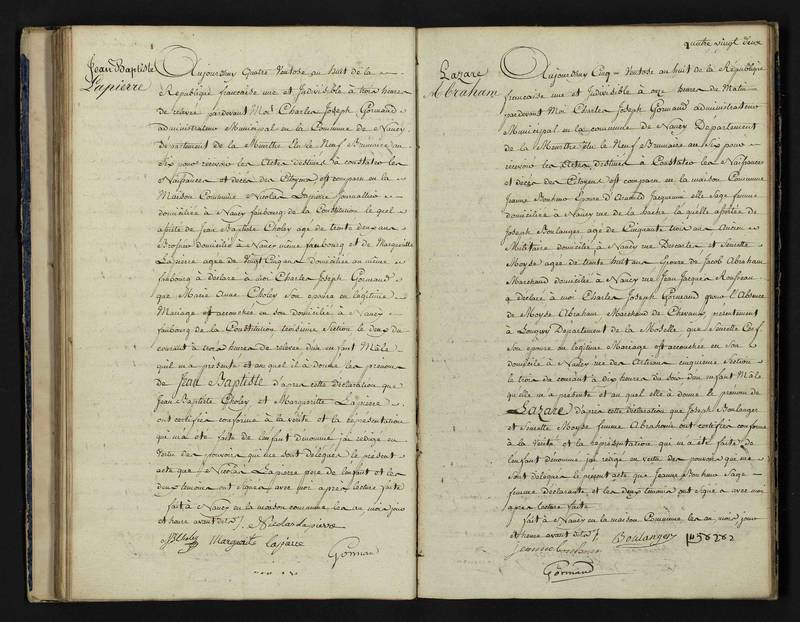 Jean Baptiste
Lapierre
Aujourdhuy Quatre Ventose an huit de la
République francaise une et Indivisible à trois heures
de relevée pardevant Moi Charles Joseph Gormand
administrateur Municipal en la Commune de Nancy
Departement de la Meurthe Elu le Neuf Brumaire an
Six pour recevoir les Actes destinés à constater les
Naissances et décès des Citoyens est comparu en la
Maison Commune Nicolas Lapierre Journallier
domicilié à Nancy faubourg de la Constitution le quel
assisté de Jean Baptiste Choley agé de trente deux ans
Brossier domicilié à Nancy même faubourg et de Marguerite
Lapierre agée de Vingt Cinq ans domiciliée au même
faubourg à déclaré à moi Charles Joseph Gormand
que Marie Anne Choley Son épouse en légitime
Mariage est accouchée en son domicilié à Nancy
faubourg de la Constitution troisieme Section le deux du
courant à trois heures de relevée d'un enfant Mâle
qu'il m'a présenté et au quel il à donné les prénoms
de Jean Baptiste d'après cette déclaration que
Jean Baptiste Choley et Marguerite Lapierre
ont certifiée conforme à la vérité et la représentation
qui m'a été faite de l'enfant dénommé j'ai rédigé en
vertu des pouvoirs qui me sont délégués le présent
acte que Nicolas Lapierre pere de l'enfant et les
deux temoins ont signés avec moi après lecture faite
fait à Nancy en la maison commune les an mois jour
et heure avant dits Nicolas Lapierre
JB Choley Marguerite lapierre
Gormand
quatre vingt deux
Lazare
Abraham
Aujourdhuy Cinq Ventose an huit de la République
francaise une et Indivisible à onze heures de Matin
pardevant Moi Charles Joseph Gormand administrateur
Municipal en la commune de Nancy Departement
de la Meurthe élu le Neuf Brumaire an Six pour
recevoir les Actes destinés à Constater les Naissances
et décès des Citoyens est comparu en la maison Commune
Jeanne Bonhomo Epouse d'Arnould Jacquemin elle Sage femme
domiciliée à Nancy rue de la hache la quelle assistée de
Joseph Boulanger agé de Cinquante trois ans Ancien
Militaire domicilié à Nancy rue Descartes et Minette
Moyse agée de trente huit ans Epouse de Jacob Abraham
Marchand domicilié à Nancy rue Jean Jacques Rousseau
a déclaré à moi Charles Joseph Gormand qu'en l'Absence
de Moyse Abraham Marchand de Chevaux présentement
à Longwy Departement de la Moselle que Minette Cerf
Son épouse en légitime Mariage est accouchée en son
domicile à Nancy rue des Artisans cinquieme Section
le trois du courant à dix heures du soir d'un enfant Mâle
qu'elle m'a présenté et au quel elle à donné le prénom de
Lazare d'après cette déclaration que Joseph Boulanger
et Minette Moyse femme Abraham ont certifiée conforme
à la vérité et la représentation qui m'a été faite de
l'enfant dénommé j'ai rédigé en vertu des pouvoirs qui me
sont délégués le présent acte que Jeanne Bonhomo Sage
femme déclarante et les deux temoins ont signé avec moi
après lecture faite
fait à Nancy en la maison Commune les an mois jour
et heure avant dits
Boulanger
Gormand